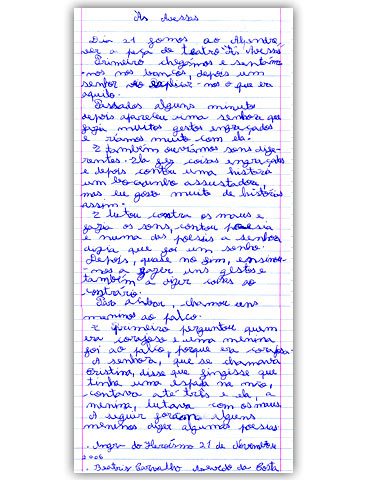 Às Avessas
Dia 21 fomos ao Alpendre
ver a peça de teatro "Às Avessas
Primeiro chegámos e sentámo-
nos nos bancos, depois um
senhor explicar-nos o que era
aquilo.
Passados alguns minutos
depois apareceu uma senhora que
fazia muitos gestos engraçados
e ríamos muito com ela.
E também ouvíamos sons dife-
rentes. Ela fez coisas engraçadas
e depois contou uma história
um bocadinho assustadora,
mas eu gosto muito de histórias
assim.
E lutou contra os maus e
fazia os sons, contou poesia
e numa das poesias a senhora
dizia que foi um sonho.
Depois, quase no fim, ensinou-
-nos a fazer uns gestos e
também a dizer coisas ao
contrário.
Para acabar, chamou uns
meninos ao palco.
E primeiro perguntou quem
era corajoso e uma menina
foi ao palco, porque era corajosa.
A senhora, que se chamava
Cristina, disse que fingisse que
tinha uma espada na mão,
contava até três e ela, a
menina, lutava com os maus
A seguir foram alguns
meninos dizer algumas poesias.
. Angra do Heroísmo 21 de Novembro
2006
. Beatriz Carvalho Azevedo da Costa